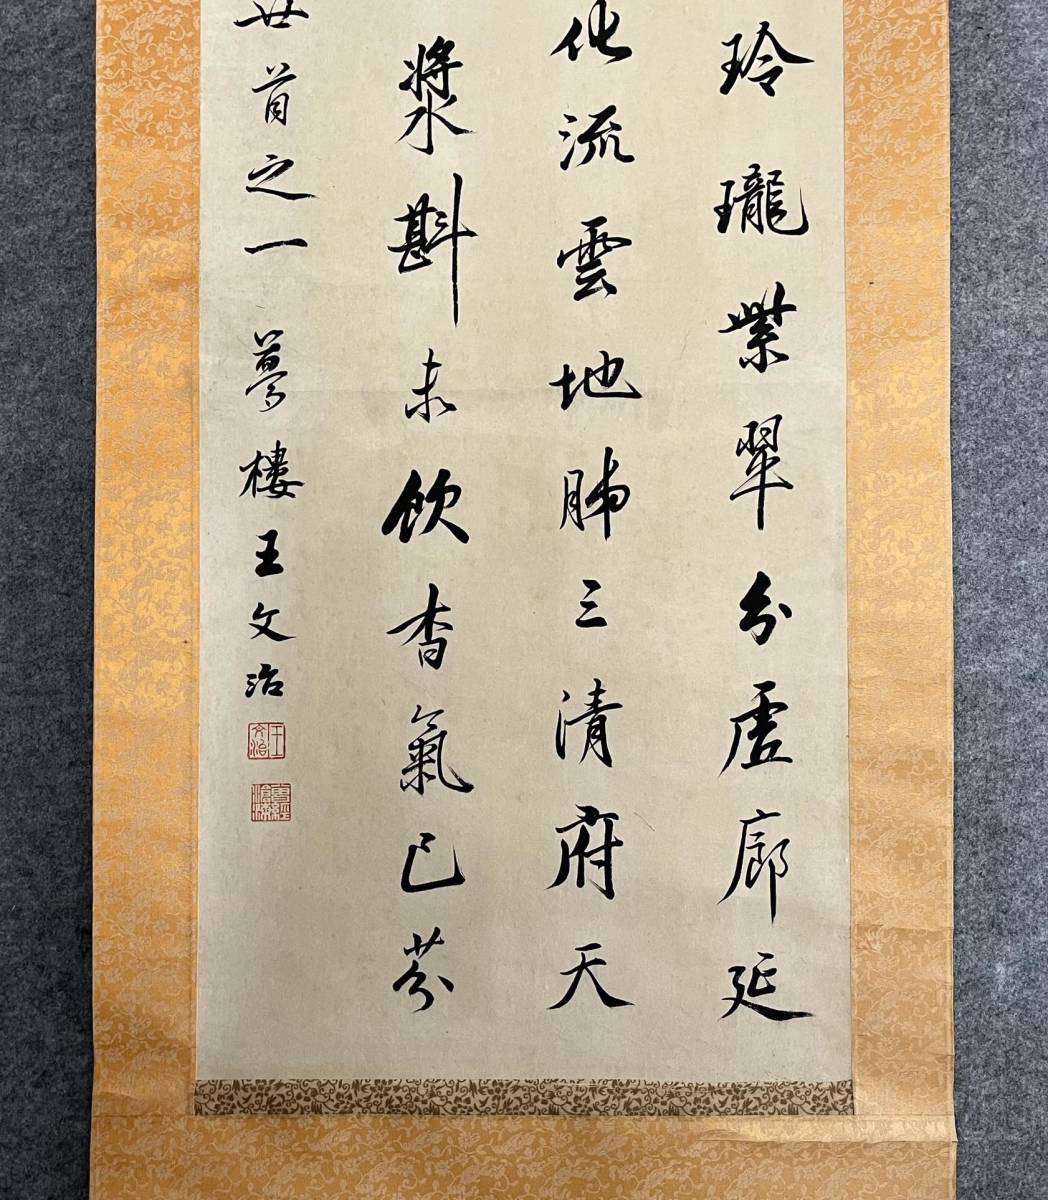 玲瓏紫翠分虛廊延
化流雲地肺三清府天
漿斟未飲香氣已芬
廿首之一 夢樓王文治
王文治
曾經滄海